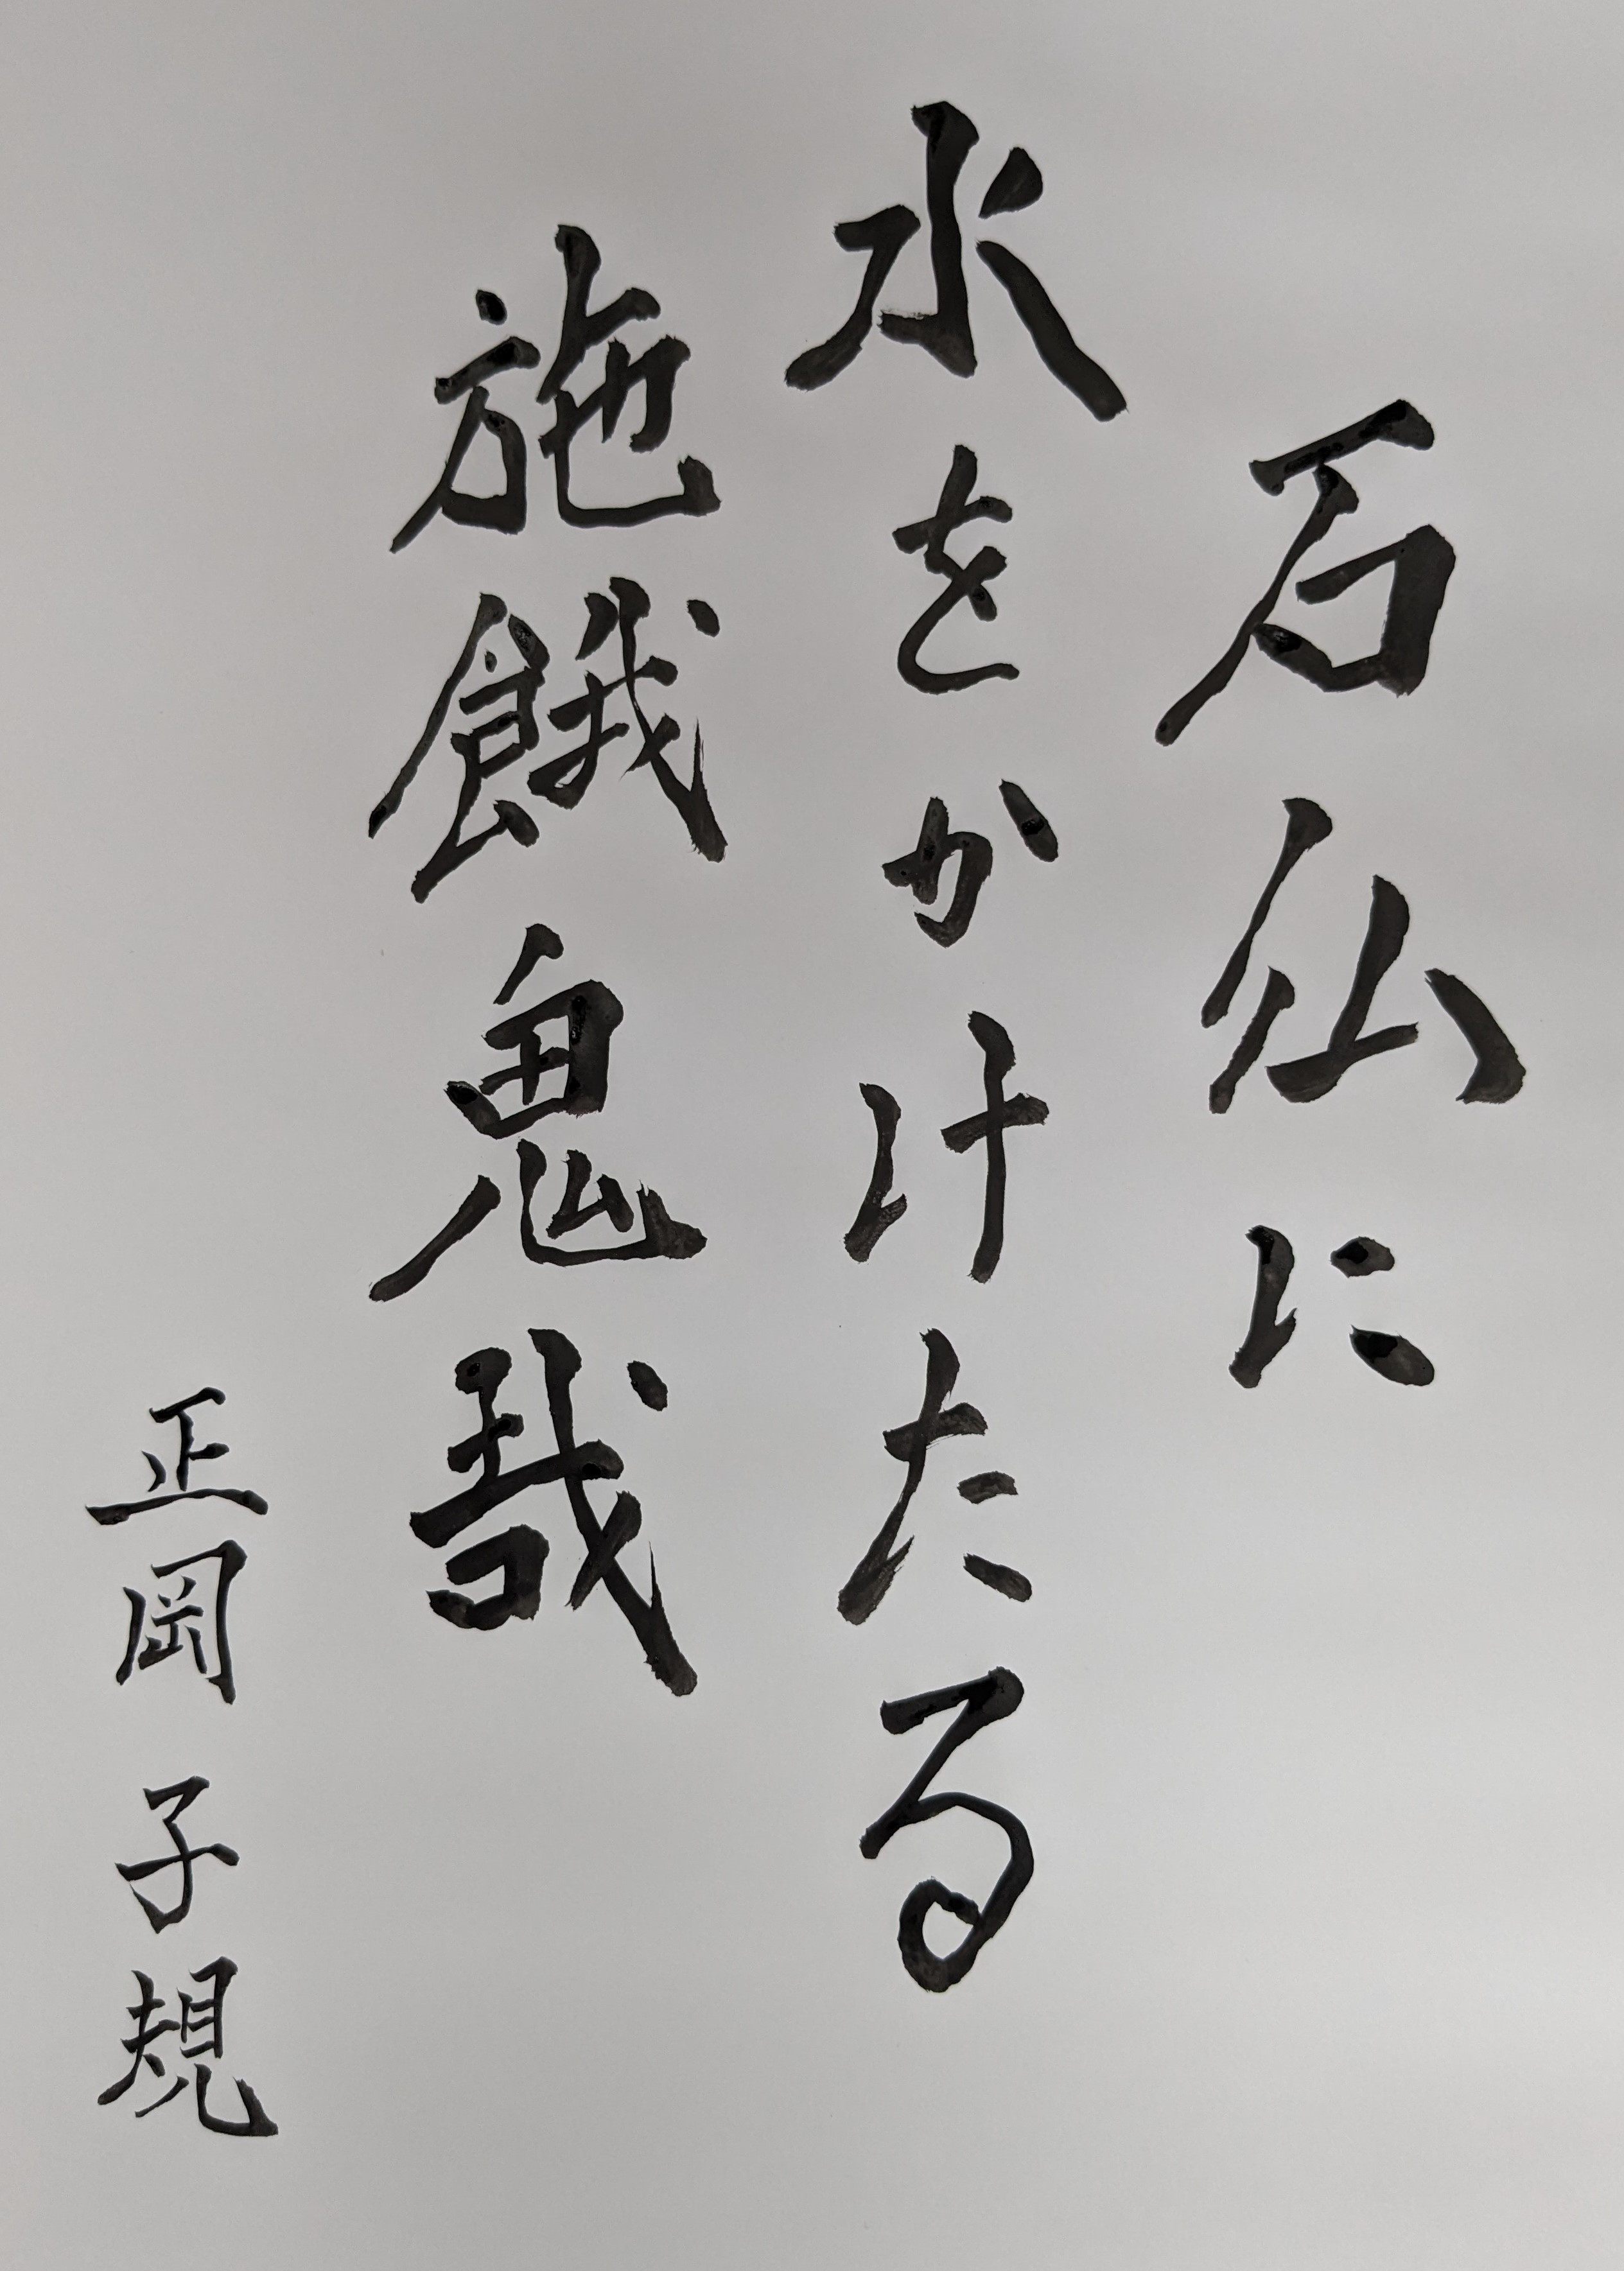 石仏に
水をかけたる
施餓鬼哉
正岡子規